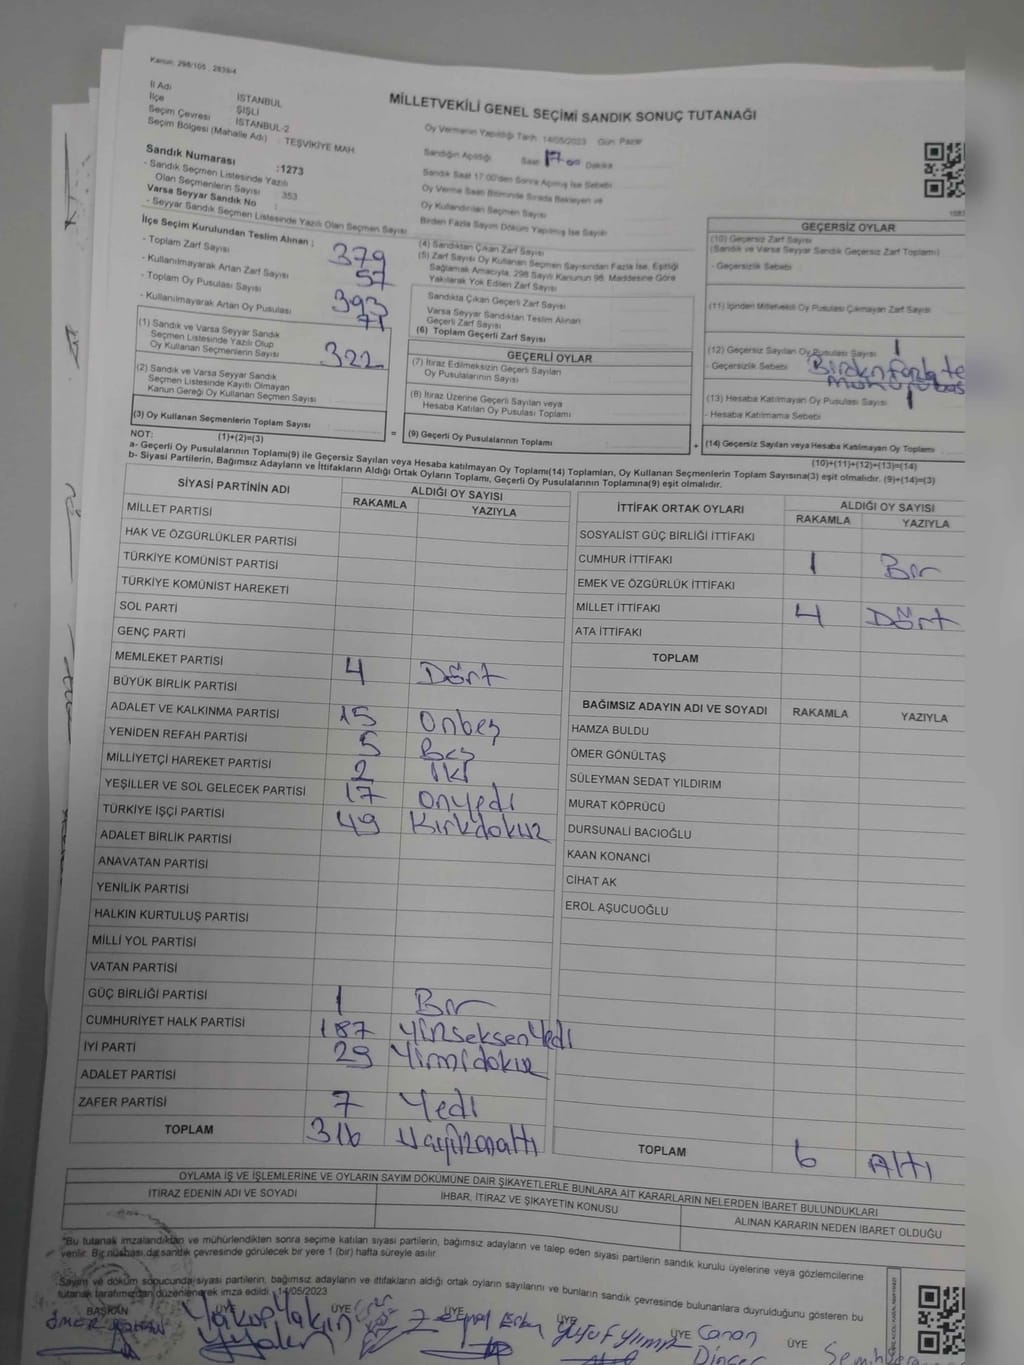 Kanun: 298/105 , 2839/4
MİLLETVEKİLİ GENEL SEÇİMİ SANDIK SONUÇ TUTANAĞI
İl Adı İSTANBUL
İlçe ŞİŞLİ
Seçim Çevresi İSTANBUL-2
Seçim Bölgesi (Mahalle Adı) : TEŞVİKİYE MAH.
Sandık Numarası :1273
- Sandık Seçmen Listesinde Yazılı
Olan Seçmenlerin Sayısı : 353
Varsa Seyyar Sandık No :
- Seyyar Sandık Seçmen Listesinde Yazılı Olan Seçmen Sayısı
Oy Vermenin Yapıldığı Tarih: 14/05/2023 Gün: Pazar
Sandığın Açıldığı Saat 17 00 Dakika
Sandık Saat 17.00'den Sonra Açılmış İse Sebebi
Oy Verme Saati Bitiminde Sırada Bekleyen ve
Oy Kullandırılan Seçmen Sayısı
Birden Fazla Sayım Döküm Yapılmış İse Sayısı
İlçe Seçim Kurulundan Teslim Alınan :
- Toplam Zarf Sayısı 379
- Kullanılmayarak Artan Zarf Sayısı 57
- Toplam Oy Pusulası Sayısı 393
- Kullanılmayarak Artan Oy Pusulası 71
(1) Sandık ve Varsa Seyyar Sandık
Seçmen Listesinde Yazılı Olup
Oy Kullanan Seçmenlerin Sayısı 322
(2) Sandık ve Varsa Seyyar Sandık
Seçmen Listesinde Kayıtlı Olmayan
Kanun Gereği Oy Kullanan Seçmen Sayısı
(3) Oy Kullanan Seçmenlerin Toplam Sayısı
(1)+(2)=(3)
(4) Sandıktan Çıkan Zarf Sayısı
(5) Zarf Sayısı Oy Kullanan Seçmen Sayısından Fazla İse, Eşitliği
Sağlamak Amacıyla, 298 Sayılı Kanunun 98. Maddesine Göre
Yakılarak Yok Edilen Zarf Sayısı
Sandıkta Çıkan Geçerli Zarf Sayısı
Varsa Seyyar Sandıktan Teslim Alınan
Geçerli Zarf Sayısı
(6) Toplam Geçerli Zarf Sayısı
GEÇERLİ OYLAR
(7) İtiraz Edilmeksizin Geçerli Sayılan
Oy Pusulalarının Sayısı
(8) İtiraz Üzerine Geçerli Sayılan veya
Hesaba Katılan Oy Pusulası Toplamı
= (9) Geçerli Oy Pusulalarının Toplamı
GEÇERSİZ OYLAR
(10) Geçersiz Zarf Sayısı
(Sandık ve Varsa Seyyar Sandık Geçersiz Zarf Toplamı)
- Geçersizlik Sebebi
(11) İçinden Milletvekili Oy Pusulası Çıkmayan Zarf Sayısı
(12) Geçersiz Sayılan Oy Pusulası Sayısı 1
- Geçersizlik Sebebi Birden fazla
(13) Hesaba Katılmayan Oy Pusulası Sayısı 1
- Hesaba Katılmama Sebebi
+ (14) Geçersiz Sayılan veya Hesaba Katılmayan Oy Toplamı
(10)+(11)+(12)+(13)=(14)
NOT:
a- Geçerli Oy Pusulalarının Toplamı(9) ile Geçersiz Sayılan veya Hesaba katılmayan Oy Toplamı(14) Toplamları, Oy Kullanan Seçmenlerin Toplam Sayısına(3) eşit olmalıdır. (9)+(14)=(3)
b- Siyasi Partilerin, Bağımsız Adayların ve İttifakların Aldığı Ortak Oyların Toplamı, Geçerli Oy Pusulalarının Toplamına(9) eşit olmalıdır.
SİYASİ PARTİNİN ADI ALDIĞI OY SAYISI
RAKAMLA YAZIYLA
MİLLET PARTİSİ
HAK VE ÖZGÜRLÜKLER PARTİSİ
TÜRKİYE KOMÜNİST PARTİSİ
TÜRKİYE KOMÜNİST HAREKETİ
SOL PARTİ
GENÇ PARTİ
MEMLEKET PARTİSİ 4 Dört
BÜYÜK BİRLİK PARTİSİ
ADALET VE KALKINMA PARTİSİ 15 Onbeş
YENİDEN REFAH PARTİSİ 5 Beş
MİLLİYETÇİ HAREKET PARTİSİ 2 İki
YEŞİLLER VE SOL GELECEK PARTİSİ 17 Onyedi
TÜRKİYE İŞÇİ PARTİSİ 49 Kırkdokuz
ADALET BİRLİK PARTİSİ
ANAVATAN PARTİSİ
YENİLİK PARTİSİ
HALKIN KURTULUŞ PARTİSİ
MİLLİ YOL PARTİSİ
VATAN PARTİSİ
GÜÇ BİRLİĞİ PARTİSİ 1 Bir
CUMHURİYET HALK PARTİSİ 187 Yüzseksenyedi
İYİ PARTİ 29 Yirmidokuz
ADALET PARTİSİ
ZAFER PARTİSİ 7 Yedi
TOPLAM 316 Üçyüzonaltı
İTTİFAK ORTAK OYLARI ALDIĞI OY SAYISI
RAKAMLA YAZIYLA
SOSYALİST GÜÇ BİRLİĞİ İTTİFAKI
CUMHUR İTTİFAKI 1 Bir
EMEK VE ÖZGÜRLÜK İTTİFAKI
MİLLET İTTİFAKI 4 Dört
ATA İTTİFAKI
TOPLAM
BAĞIMSIZ ADAYIN ADI VE SOYADI RAKAMLA YAZIYLA
HAMZA BULDU
ÖMER GÖNÜLTAŞ
SÜLEYMAN SEDAT YILDIRIM
MURAT KÖPRÜCÜ
DURSUNALİ BACIOĞLU
KAAN KONANCİ
CİHAT AK
EROL AŞUCUOĞLU
TOPLAM 6 Altı
OYLAMA İŞ VE İŞLEMLERİNE VE OYLARIN SAYIM DÖKÜMÜNE DAİR ŞİKAYETLERLE BUNLARA AİT KARARLARIN NELERDEN İBARET BULUNDUKLARI
İTİRAZ EDENİN ADI VE SOYADI İHBAR, İTİRAZ VE ŞİKAYETİN KONUSU ALINAN KARARIN NEDEN İBARET OLDUĞU
*Bu tutanak imzalandıktan ve mühürlendikten sonra seçime katılan siyasi partilerin, bağımsız adayların ve talep eden siyasi partilerin sandık kurulu üyelerine veya gözlemcilerine
verilir. Bir nüshası da sandık çevresinde görülecek bir yere 1 (bir) hafta süreyle asılır.
Sayım ve döküm sonucunda siyasi partilerin, bağımsız adayların ve ittifakların aldığı ortak oyların sayılarını ve bunların sandık çevresinde bulunanlara duyrulduğunu gösteren bu
tutanak tarafımızdan düzenlenerek imza edildi. 14/05/2023
BAŞKAN ÜYE ÜYE ÜYE ÜYE ÜYE ÜYE
Yakup Yakın Yusuf Canan
Dinçer